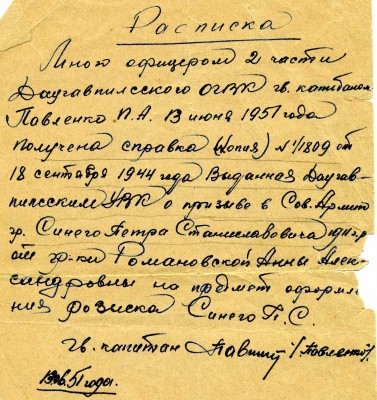 Расписка
Мною офицером 2 части
Даугавпилсского ОГВК гв. капитаном
Павленко П.А. 13 июня 1951 года
получена справка (копия) № 1/1809 от
18 сентября 1944 года Выданная Даугав-
пилсским УВК о призыве в Сов. Армию
гр. Синего Петра Станиславовича 1911 г.р
от гр-ки Романовской Анны Алек-
сандровны на предмет оформле
ния розиска Синего П.С.
Гв. капитан /Павленко/.
13.6.51 года.